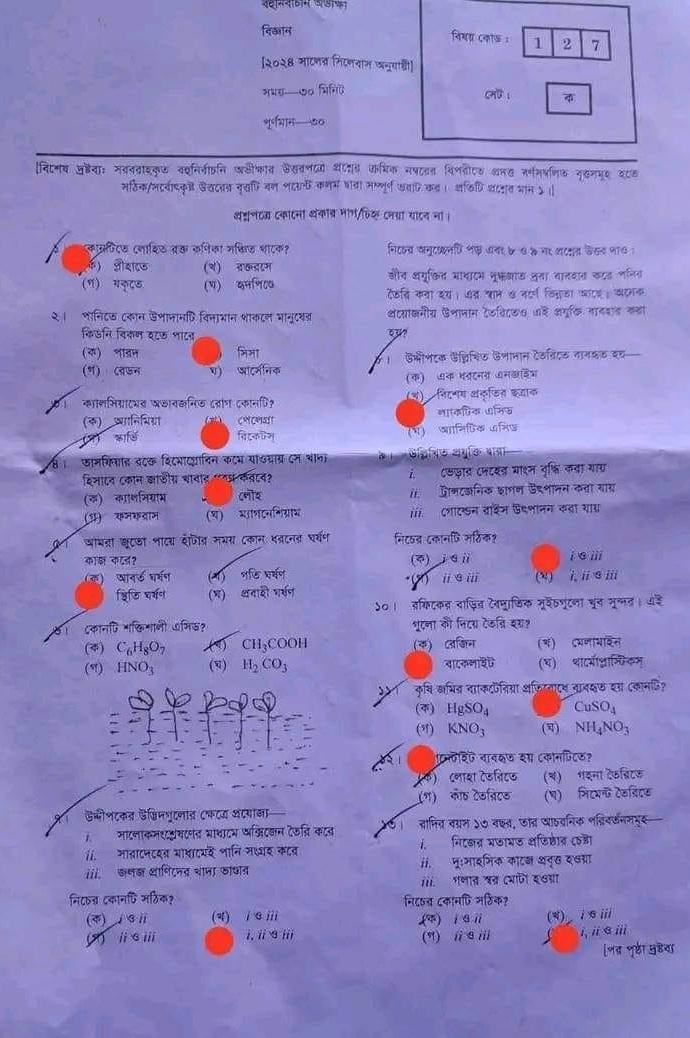 বহুনির্বাচনি অভীক্ষা
বিজ্ঞান
[২০২৪ সালের সিলেবাস অনুযায়ী]
সময়—৩০ মিনিট
পূর্ণমান—৩০
বিষয় কোড : 1 2 7
সেট : ক
[বিশেষ দ্রষ্টব্য: সরবরাহকৃত বহুনির্বাচনি অভীক্ষার উত্তরপত্রে প্রশ্নের ক্রমিক নম্বরের বিপরীতে প্রদত্ত বর্ণসম্বলিত বৃত্তসমূহ হতে
সঠিক/সর্বোৎকৃষ্ট উত্তরের বৃত্তটি বল পয়েন্ট কলম দ্বারা সম্পূর্ণ ভরাট কর। প্রতিটি প্রশ্নের মান ১।]
প্রশ্নপত্রে কোনো প্রকার দাগ/চিহ্ন দেয়া যাবে না।
১। কোনটিতে লোহিত রক্ত কণিকা সঞ্চিত থাকে?
(ক) প্লীহাতে (খ) রক্তরসে
(গ) যকৃতে (ঘ) হৃদপিণ্ডে
২। পানিতে কোন উপাদানটি বিদ্যমান থাকলে মানুষের
কিডনি বিকল হতে পারে
(ক) পারদ সিসা
(গ) রেডন ঘ) আর্সেনিক
৩। ক্যালসিয়ামের অভাবজনিত রোগ কোনটি?
(ক) অ্যানিমিয়া (খ) পেলেগ্রা
(গ) স্কার্ভি রিকেটস্
৪। তাসফিয়ার রক্তে হিমোগ্লোবিন কমে যাওয়ায় সে খাদ্য
হিসাবে কোন জাতীয় খাবার গ্রহণ করবে?
(ক) ক্যালসিয়াম লৌহ
(গ) ফসফরাস (ঘ) ম্যাগনেশিয়াম
৫। আমরা জুতো পায়ে হাঁটার সময় কোন ধরনের ঘর্ষণ
কাজ করে?
(ক) আবর্ত ঘর্ষণ (খ) গতি ঘর্ষণ
স্থিতি ঘর্ষণ (ঘ) প্রবাহী ঘর্ষণ
৬। কোনটি শক্তিশালী এসিড?
(ক) C₆H₈O₇ (খ) CH₃COOH
(গ) HNO₃ (ঘ) H₂CO₃
৭। উদ্দীপকের উদ্ভিদগুলোর ক্ষেত্রে প্রযোজ্য—
i. সালোকসংশ্লেষণের মাধ্যমে অক্সিজেন তৈরি করে
ii. সারাদেহের মাধ্যমেই পানি সংগ্রহ করে
iii. জলজ প্রাণিদের খাদ্য ভাণ্ডার
নিচের কোনটি সঠিক?
(ক) i ও ii (খ) i ও iii
(গ) ii ও iii i, ii ও iii
নিচের অনুচ্ছেদটি পড় এবং ৮ ও ৯ নং প্রশ্নের উত্তর দাও :
জীব প্রযুক্তির মাধ্যমে দুগ্ধজাত দ্রব্য ব্যবহার করে পনির
তৈরি করা হয়। এর স্বাদ ও বর্ণে ভিন্নতা আছে। অনেক
প্রয়োজনীয় উপাদান তৈরিতেও এই প্রযুক্তি ব্যবহার করা
হয়?
৮। উদ্দীপকে উল্লিখিত উপাদান তৈরিতে ব্যবহৃত হয়—
(ক) এক ধরনের এনজাইম
(খ) বিশেষ প্রকৃতির ছত্রাক
ল্যাকটিক এসিড
(ঘ) অ্যাসিটিক এসিড
৯। উল্লিখিত প্রযুক্তি দ্বারা
i. ভেড়ার দেহের মাংস বৃদ্ধি করা যায়
ii. ট্রান্সজেনিক ছাগল উৎপাদন করা যায়
iii. গোল্ডেন রাইস উৎপাদন করা যায়
নিচের কোনটি সঠিক?
(ক) i ও ii i ও iii
(গ) ii ও iii (ঘ) i, ii ও iii
১০। রফিকের বাড়ির বৈদ্যুতিক সুইচগুলো খুব সুন্দর। এই
গুলো কী দিয়ে তৈরি হয়?
(ক) রেজিন (খ) মেলামাইন
বাকেলাইট (ঘ) থার্মোপ্লাস্টিকস্
১১। কৃষি জমির ব্যাকটেরিয়া প্রতিরোধে ব্যবহৃত হয় কোনটি?
(ক) HgSO₄ CuSO₄
(গ) KNO₃ (ঘ) NH₄NO₃
১২। ব্যবহৃত হয় কোনটিতে?
(ক) লোহা তৈরিতে (খ) গহনা তৈরিতে
(গ) কাঁচ তৈরিতে (ঘ) সিমেন্ট তৈরিতে
১৩। রানির বয়স ১৩ বছর, তার আচরনিক পরিবর্তনসমূহ—
i. নিজের মতামত প্রতিষ্ঠার চেষ্টা
ii. দুঃসাহসিক কাজে প্রবৃত্ত হওয়া
iii. গলার স্বর মোটা হওয়া
নিচের কোনটি সঠিক?
(ক) i ও ii (খ) i ও iii
(গ) ii ও iii i, ii ও iii
[পর পৃষ্ঠা দ্রষ্টব্য